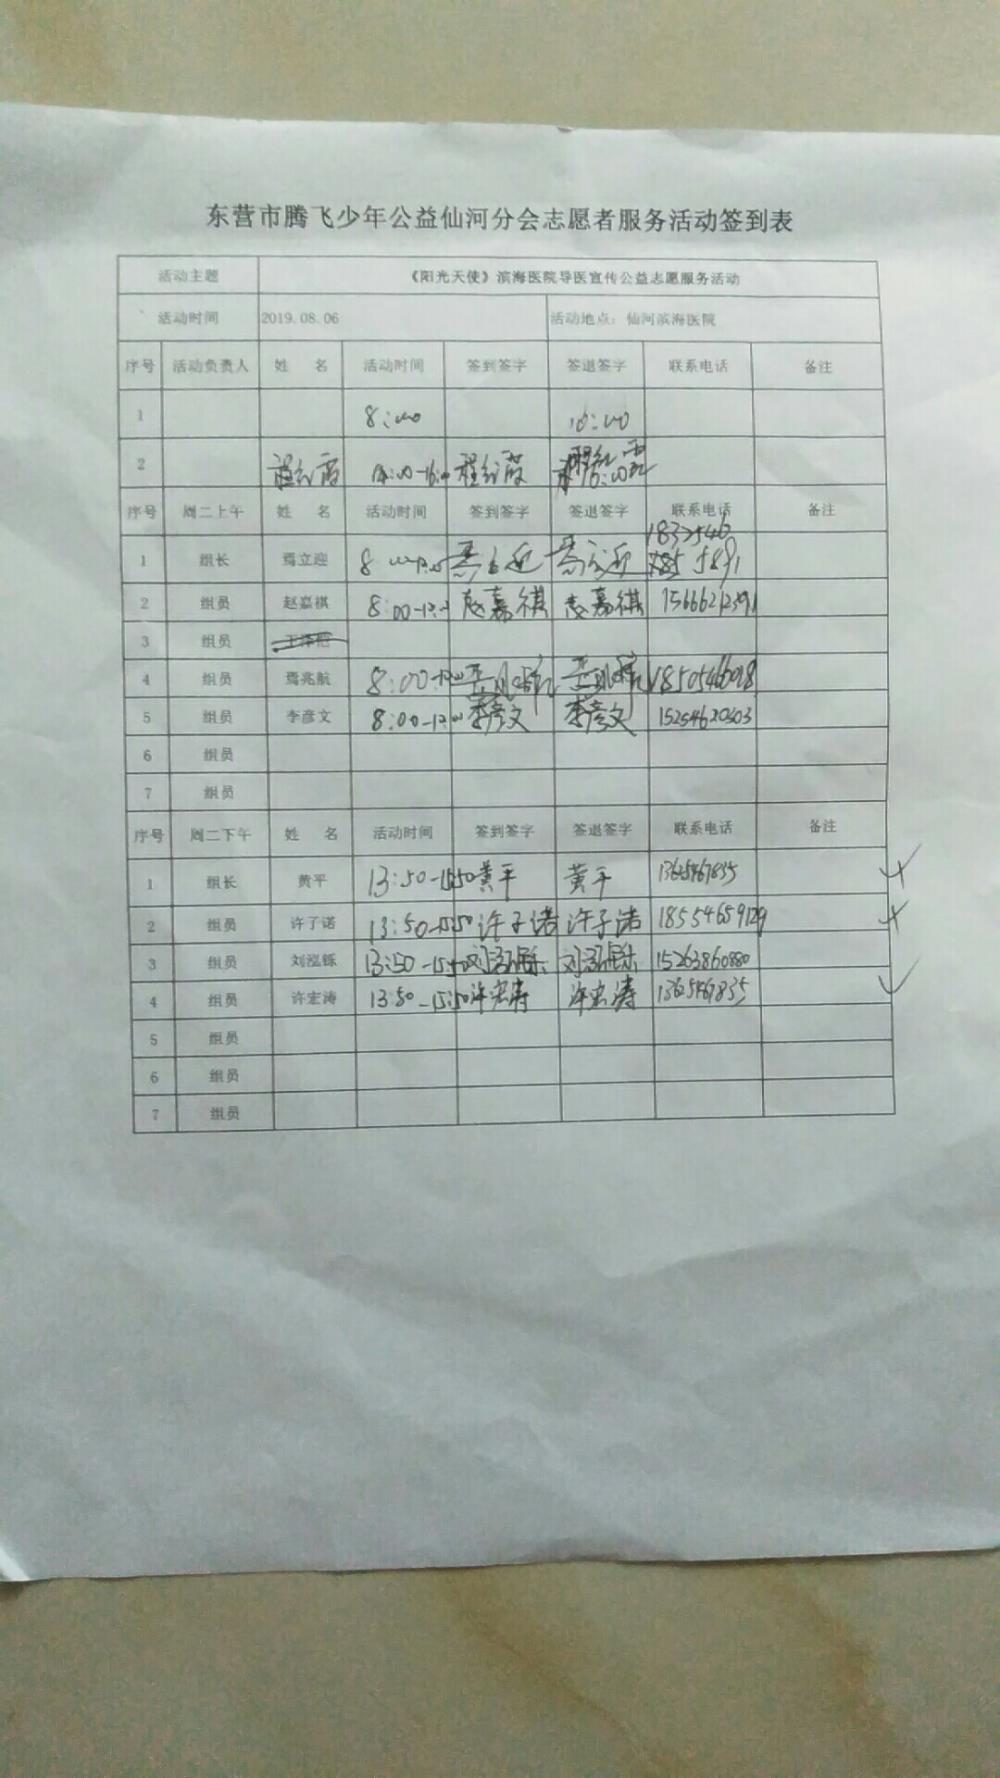 东营市腾飞少年公益仙河分会志愿者服务活动签到表
活动主题 《阳光天使》滨海医院导医宣传公益志愿服务活动
活动时间 2019.08.06 活动地点：仙河滨海医院
序号 活动负责人 姓 名 活动时间 签到签字 签退签字 联系电话 备注
1 8:00 10:00
2 程红霞 程红霞
序号 周二上午 姓 名 活动时间 签到签字 签退签字 联系电话 备注
1 组长 焉立迎 8
2 组员 赵嘉祺 8:00 赵嘉祺 赵嘉祺 15666212391
3 组员
4 组员 焉兆航 8:00
5 组员 李彦文 8:00 李彦文 李彦文 15254620303
6 组员
7 组员
序号 周二下午 姓 名 活动时间 签到签字 签退签字 联系电话 备注
1 组长 黄平 13:50-15:50 黄平 黄平
2 组员 许子诺 13:50-15:50 许子诺 许子诺 18554659129
3 组员 刘泓铄 13:50-15:50 刘泓铄 刘泓铄 15263860880
4 组员 许宏涛 13:50-15:50 许宏涛 许宏涛
5 组员
6 组员
7 组员